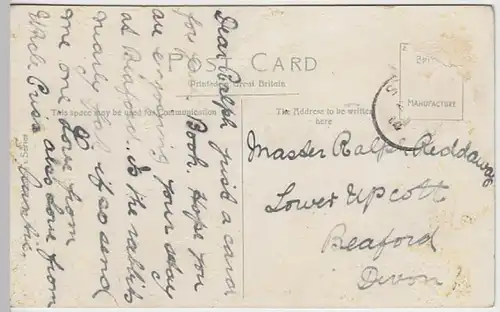 POST CARD
Printed in Great Britain
This space may be used for Communication
The Address to be written
here
MANUFACTURE
Dear Ralph just a card
for your Book. Hope you
are enjoying your stay
at Beaford. Is the rabbits
nearly fat if so send
me one Love from
Uncle Puss also Love from
Auntie.
Master Ralph Reddaway
Lower Upcott
Beaford
Devon